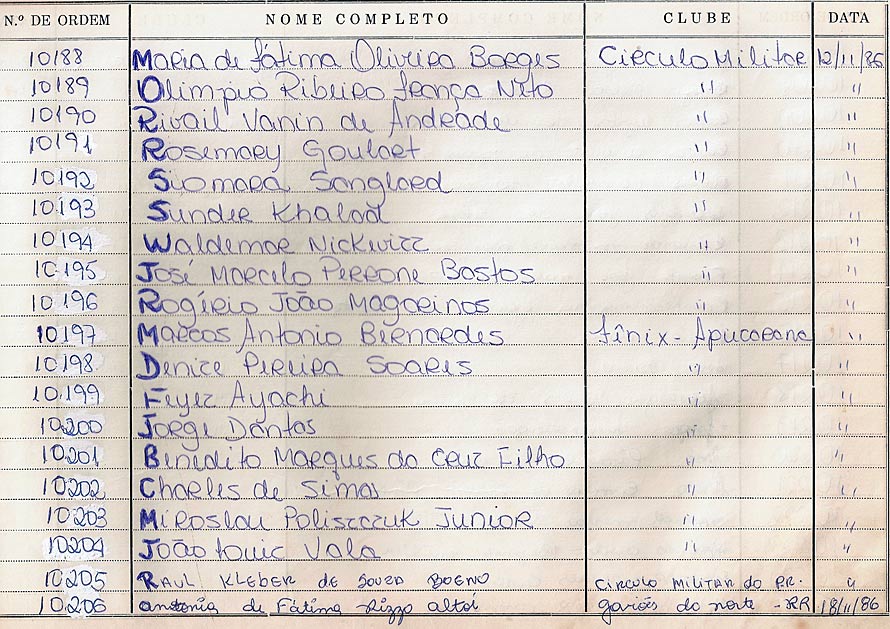 N.º DE ORDEM NOME COMPLETO CLUBE DATA
10188 Maria de fátima Oliveira Borges Circulo Militar 12/11/86
10189 Olimpio Ribeiro frança Neto " "
10190 Rivail Vanin de Andrade " "
10191 Rosemary Goulart " "
10192 Siomara Songlard " "
10193 Sunder Khalad " "
10194 Waldemar Nickwicz " "
10195 José Marcelo Perrone Bastos " "
10196 Rogério João Magorinos " "
10197 Marcos Antonio Bernardes fênix - Apucarana "
10198 Denize Pereira Soares " "
10199 Feyez Ayachi " "
10200 Jorge Dantas " "
10201 Benedito Marques da Cruz Filho " "
10202 Charles de Simas " "
10203 Miroslau Poliszczuk Junior " "
10204 João Luiz Vala " "
10205 RAUL KLEBER DE SOUZA BOENO CIRCULO MILITAR DO PR. "
10206 antonia de Fátima Rizzo altoí gaviões do norte - RR 18/11/86